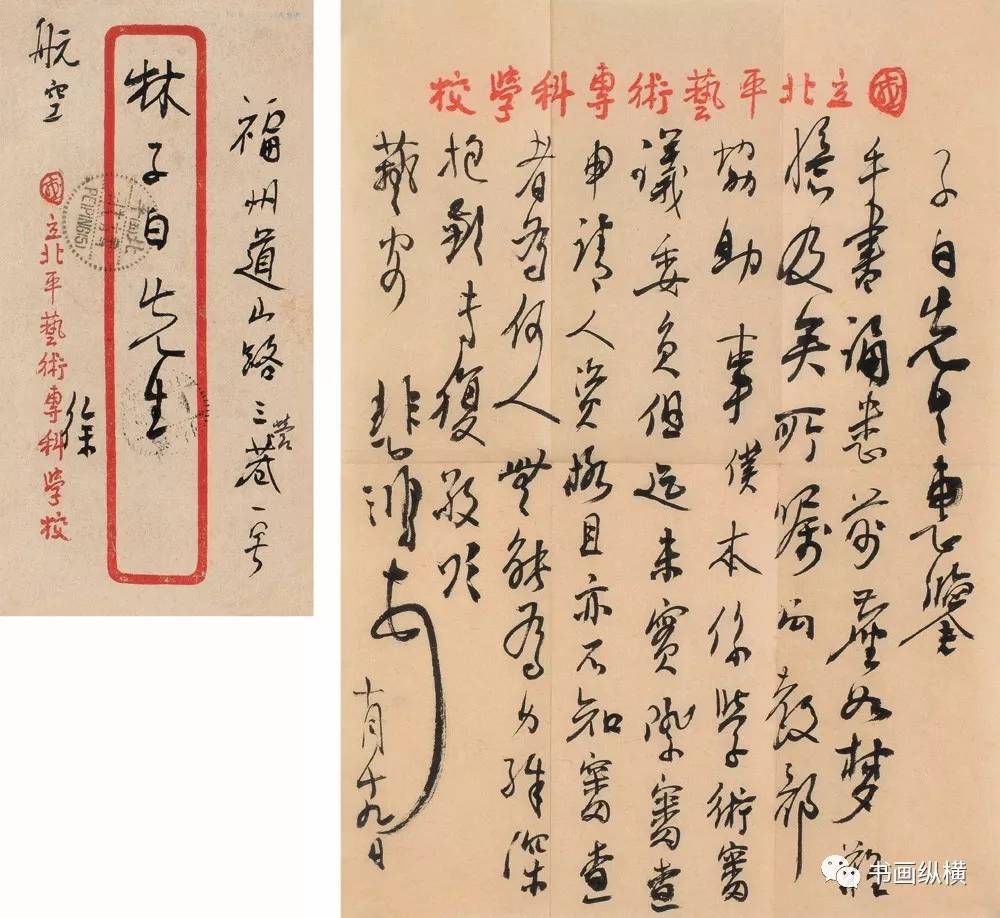 福州道山路三營巷一号
林子白先生
航空
國立北平藝術專科學校
徐
PEIPING(5)
北平
國立北平藝術專科學校
子白先生惠鑒
手書誦悉前塵如夢難
憶及矣所囑向教部
協助事僕本係學術審
議委員但迄未實際審查
申請人資格且亦不知審查
者為何人無能為力殊深
抱歉专復敬頌
藝安 悲鴻
十月十九日
书画纵横